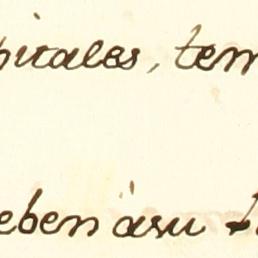 pitales, tem
eben á su